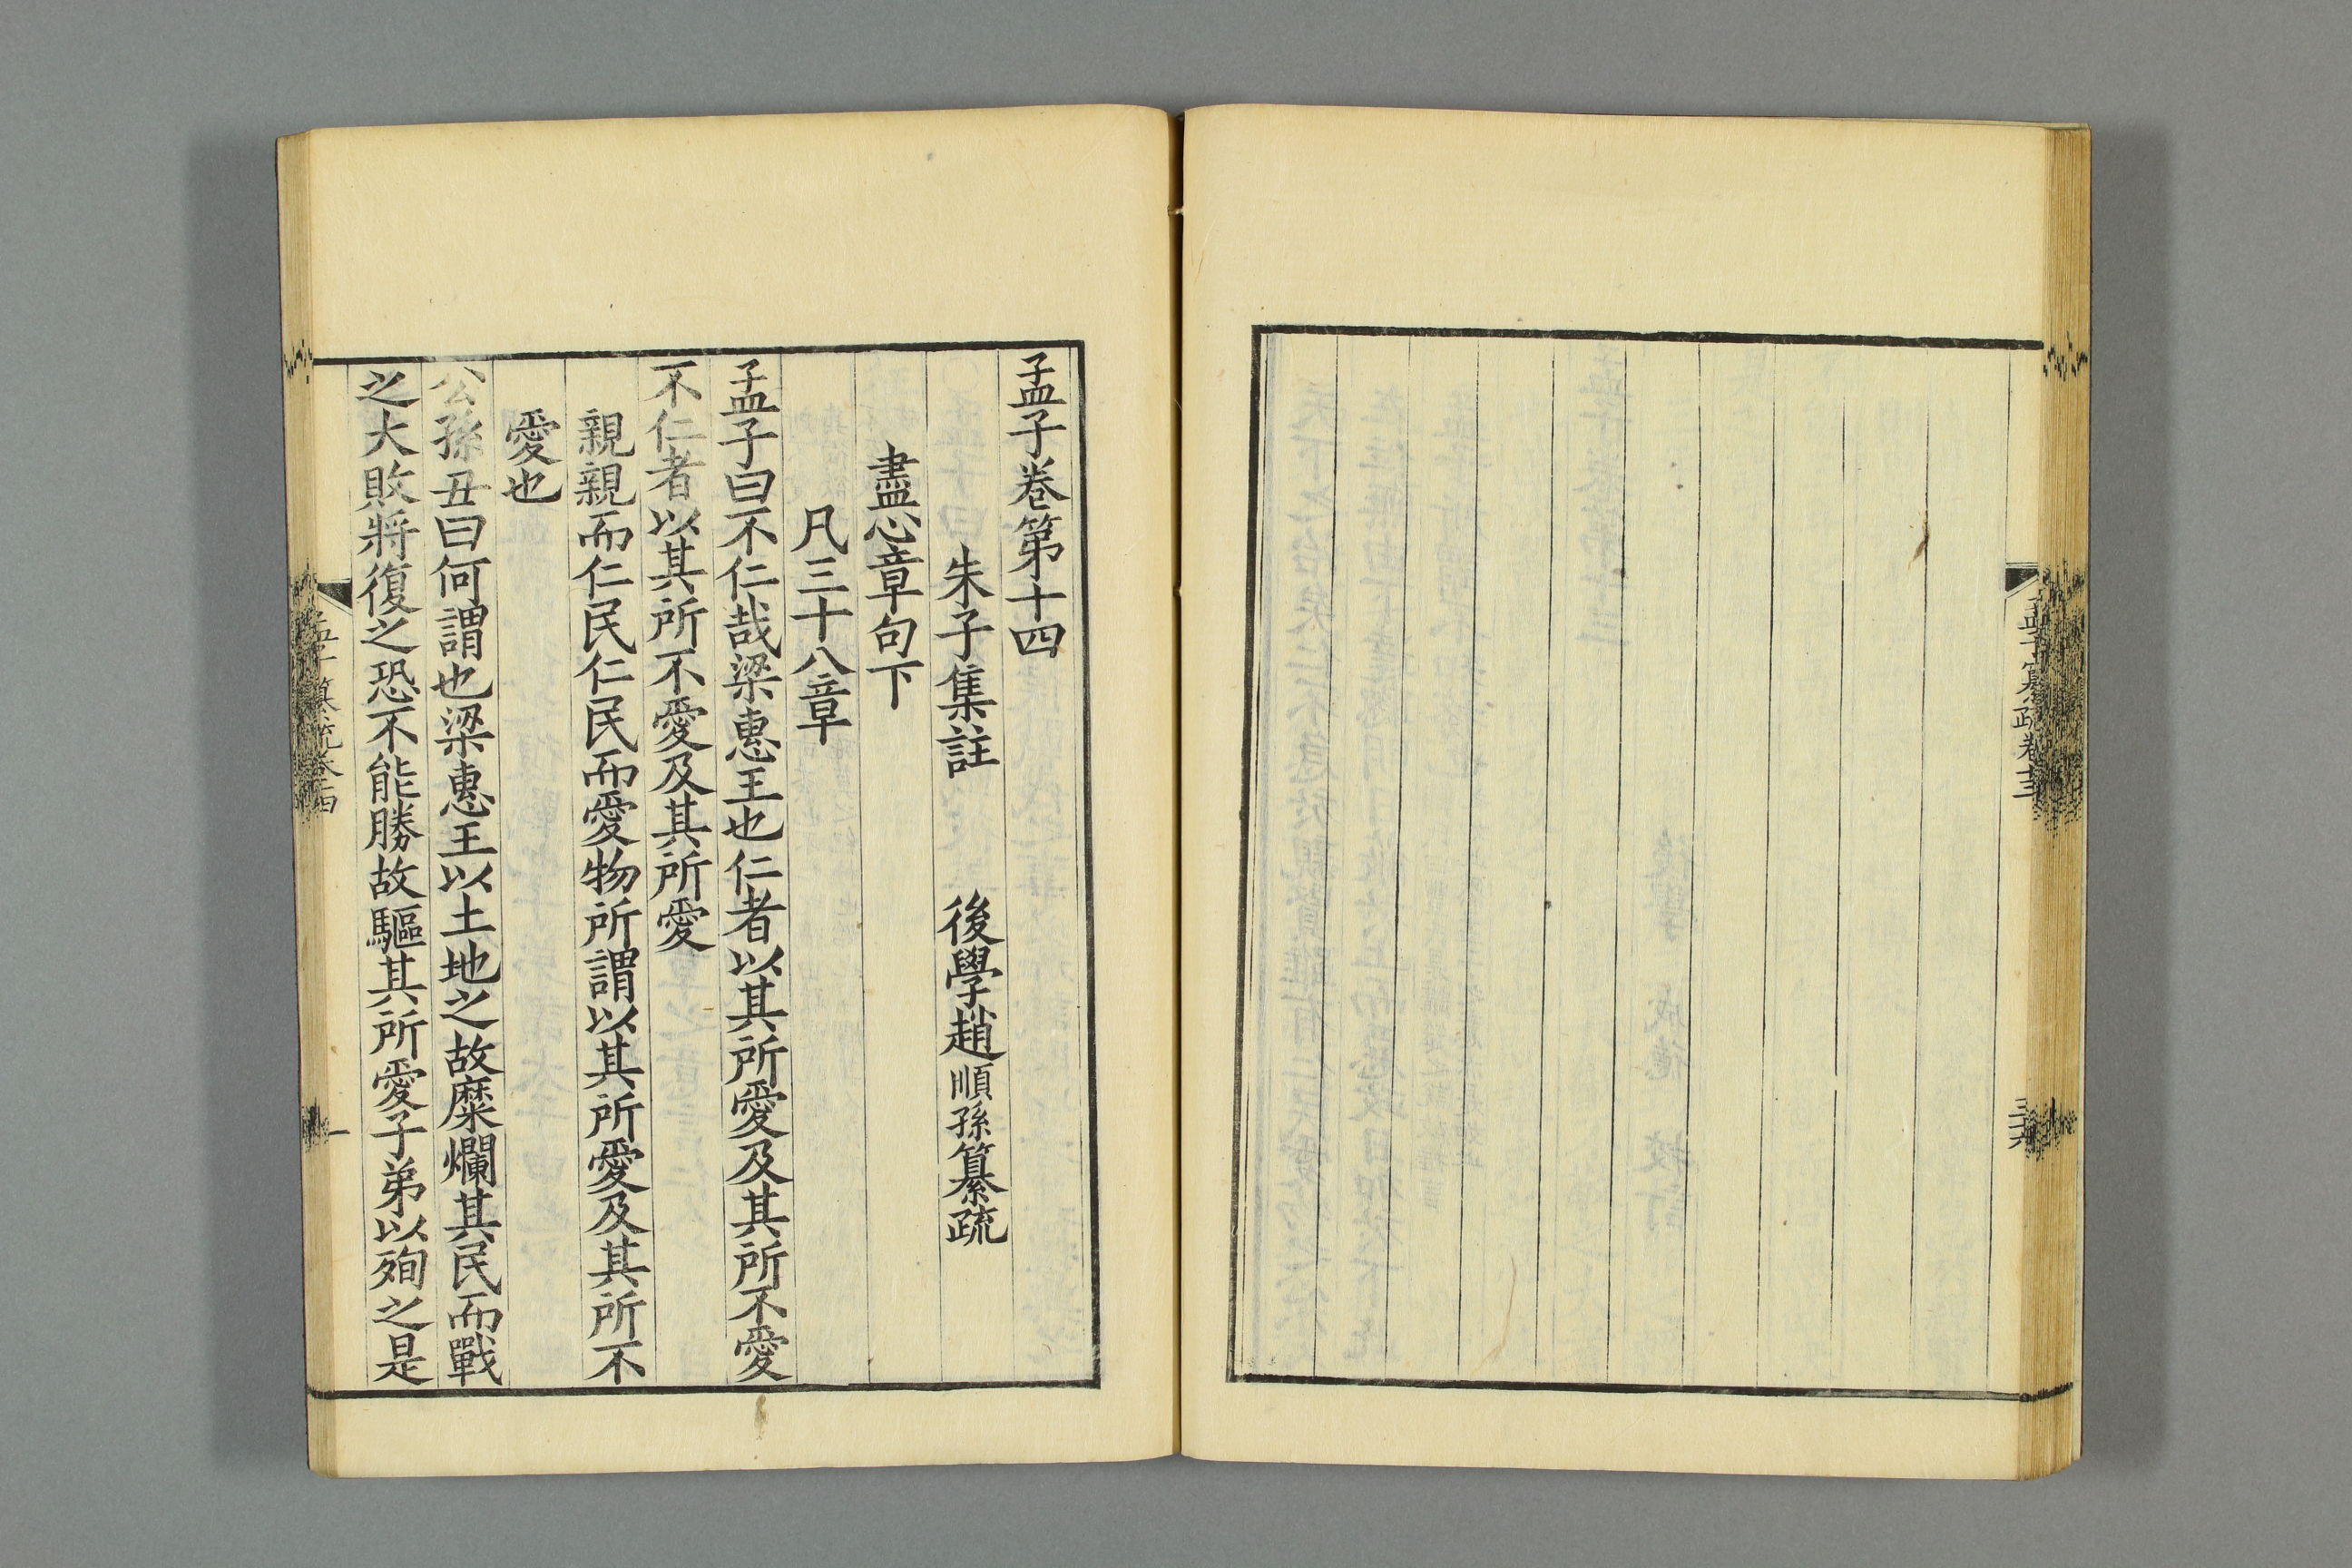 孟子纂疏卷十三
三十六
孟子卷第十四
朱子集註 後學趙順孫纂疏
盡心章句下
凡三十八章
孟子曰不仁哉梁惠王也仁者以其所愛及其所不愛
不仁者以其所不愛及其所愛
親親而仁民仁民而愛物所謂以其所愛及其所不
愛也
公孫丑曰何謂也梁惠王以土地之故糜爛其民而戰
之大敗將復之恐不能勝故驅其所愛子弟以殉之是
孟子纂疏卷十四
一